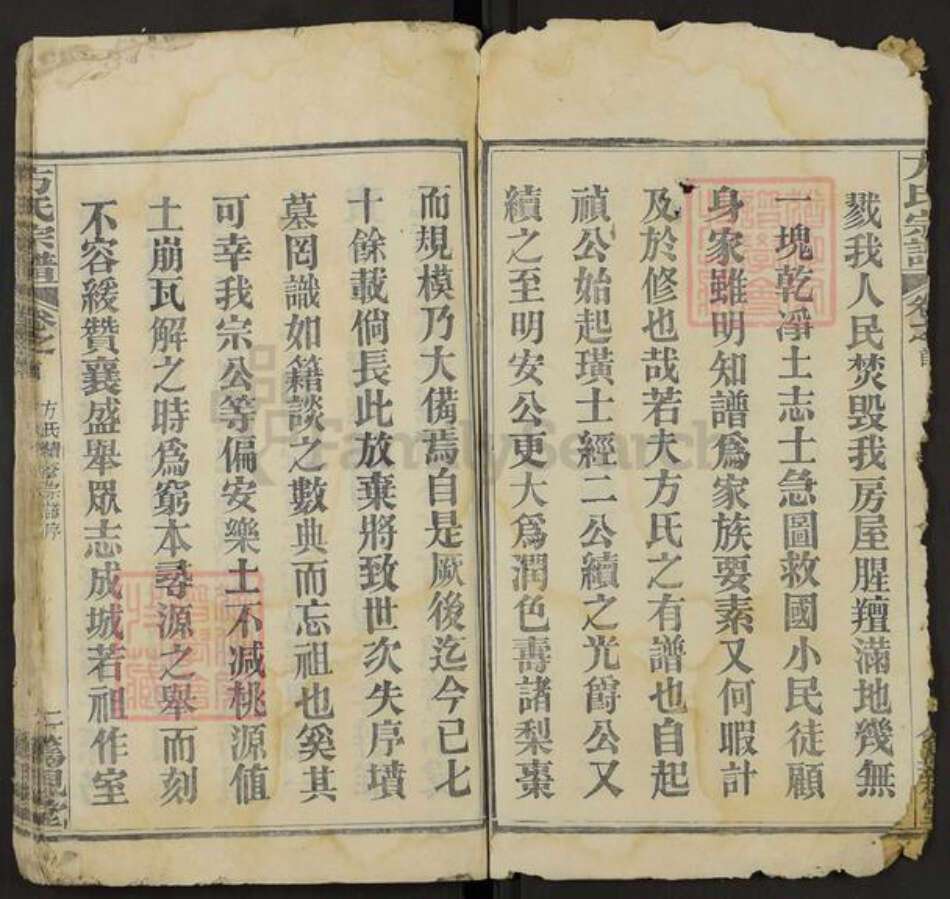 戮我人民焚毀我房屋腥羶滿地幾無
一塊乾凈土志士急圖救國小民徒顧
身家雖明知譜爲家族要素又何暇計
及於修也哉若夫方氏之有譜也自起
禎公始起璜士經二公續之光爵公又
續之至明安公更大爲潤色壽諸梨棗
而規模乃大備焉自是厥後迄今已七
十餘載倘長此放棄將致世次失序墳
墓罔識如籍談之數典而忘祖也奚其
可幸我宗公等偏安樂土不减桃源值
土崩瓦解之時爲窮本尋源之舉而刻
不容緩贊襄盛舉眾志成城若祖作室
方氏宗譜 卷之首
方氏續修宗譜序
FamilySearch